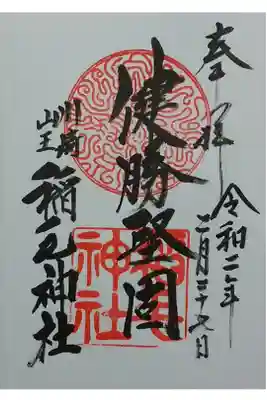 奉拝
令和二年
二月二十七日
健勝堅固
川崎
山王
稲毛神社
神社